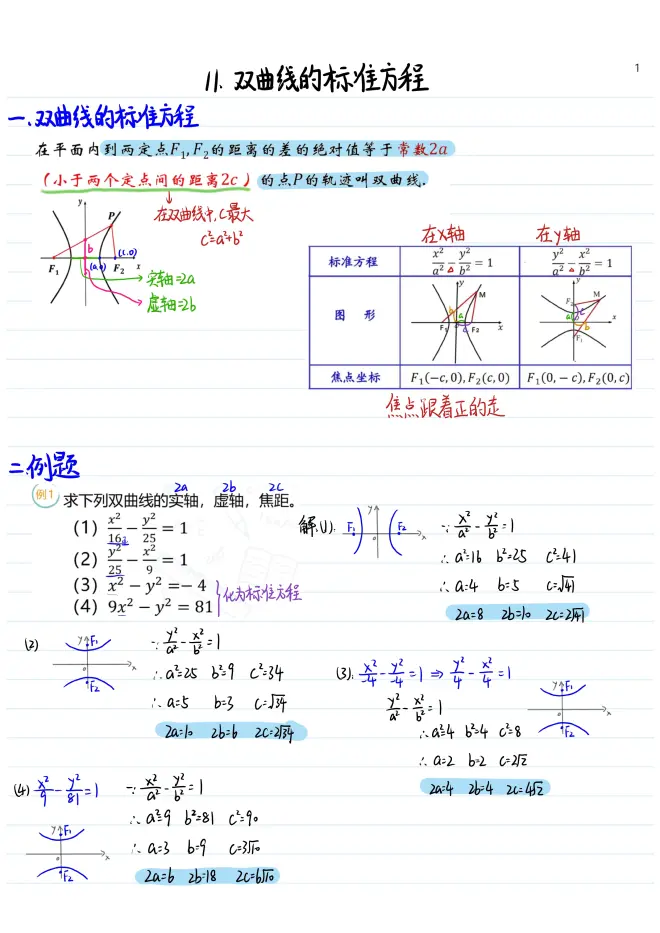 1
11. 双曲线的标准方程
一.双曲线的标准方程
在平面内到两定点F₁,F₂的距离的差的绝对值等于常数2a
(小于两个定点间的距离2c)的点P的轨迹叫双曲线.
在双曲线中,C最大
c²=a²+b²
y
P
b
(a,0)
(c,0)
F₁
F₂
x
实轴=2a
虚轴=2b
在x轴
在y轴
标准方程
x²/a² - y²/b² = 1
y²/a² - x²/b² = 1
图 形
y
M
b
a
c
F₁
F₂
x
y
F₂
M
a
c
b
F₁
x
焦点坐标
F₁(−c,0),F₂(c,0)
F₁(0,−c),F₂(0,c)
焦点跟着正的走
二.例题
2a 2b 2c
例1 求下列双曲线的实轴，虚轴，焦距。
(1) x²/16 - y²/25 = 1
(2) y²/25 - x²/9 = 1
(3) x² − y² =− 4
(4) 9x² − y² = 81
化为标准方程
解:(1):
y
F₁
F₂
o
x
∵ x²/a² - y²/b² = 1
∴ a²=16 b²=25 c²=41
∴ a=4 b=5 c=√41
2a=8 2b=10 2c=2√41
(2)
y
F₁
o
x
F₂
∵ y²/a² - x²/b² = 1
∴ a²=25 b²=9 c²=34
∴ a=5 b=3 c=√34
2a=10 2b=6 2c=2√34
(3): x²/-4 - y²/-4 = 1 ⇒ y²/4 - x²/4 = 1
y²/a² - x²/b² = 1
y
F₁
o
x
F₂
∴ a²=4 b²=4 c²=8
∴ a=2 b=2 c=2√2
2a=4 2b=4 2c=4√2
(4) x²/9 - y²/81 = 1
y
F₁
o
x
F₂
∵ x²/a² - y²/b² = 1
∴ a²=9 b²=81 c²=90
∴ a=3 b=9 c=3√10
2a=6 2b=18 2c=6√10